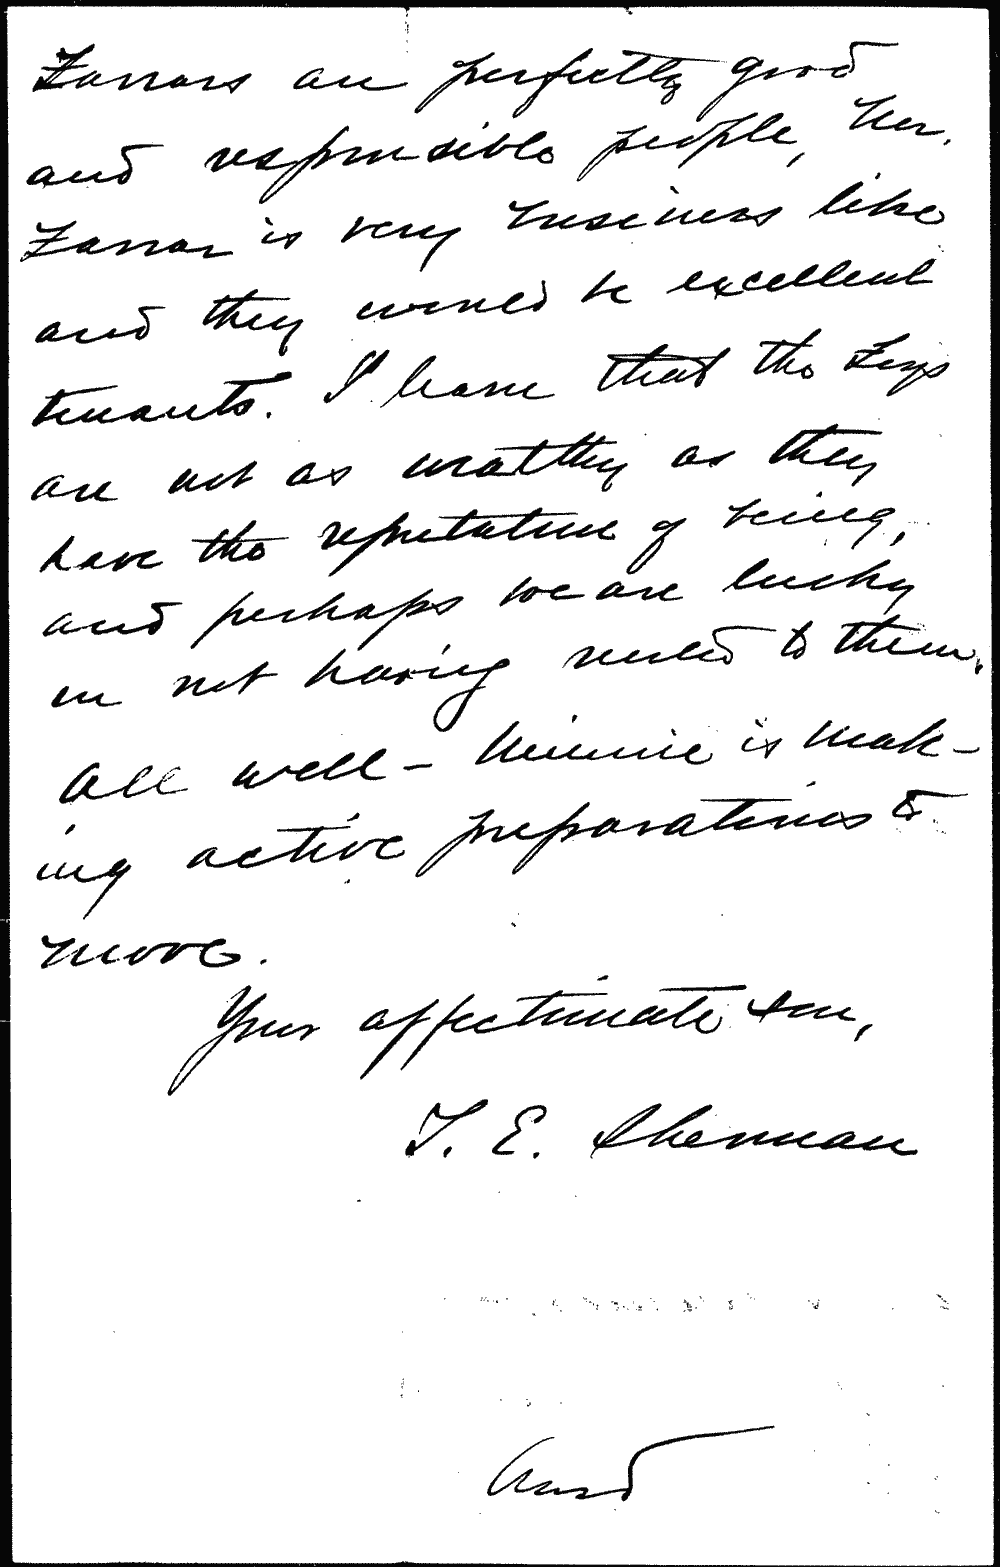 Farrars are perfectly good
and responsible people, Mr.
Farrar is very business like
and they would be excellent
tenants. I learn that the
are not as wealthy as they
have the reputation of being,
and perhaps we are lucky
in not having rented to them.
All well – Minnie is mak-
ing active preparations to
move.
Your affectionate son,
T. E. Sherman